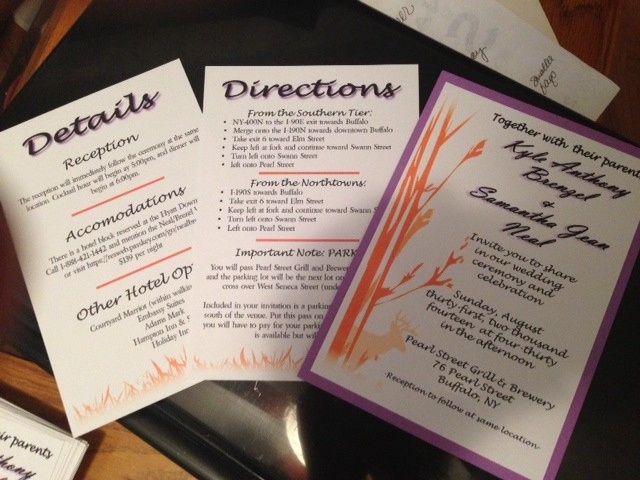 Details
Reception
The reception will immediately follow the ceremony at the same
location. Cocktail hour will begin ay 5:00pm, and dinner will
begin at 6:00pm.
Accomodations
There is a hotel block reserved at the Hyatt Down
Call 1-888-421-1442 and mention the Neal/
or visit https://resweb.passkey.com/go/
$139 per night
Other Hotel Op
Courtyard Marriot (within walkin
Embassy Suites
Adams Mark
Hampton Inn & S
Holiday Inn
Directions
From the Southern Tier:
• NY-400N to the I-90E exit towards Buffalo
• Merge onto the I-190N towards downtown Buffalo
• Take exit 6 toward Elm Street
• Keep left at fork and continue toward Swann Street
• Turn left onto Swann Street
• Left onto Pearl Street
From the Northtowns:
• I-190S towards Buffalo
• Take exit 6 toward Elm Street
• Keep left at fork and continue toward Swann Street
• Turn left onto Swann Street
• Left onto Pearl Street
Important Note: PARK
You will pass Pearl Street Grill and Brewer
and the parking lot will be the next lot on
cross over West Seneca Street (under
Included in your invitation is a parking
south of the venue. Put this pass on
you will have to pay for your parking
is available but will
Together with their parents
Kyle Anthony
Brengel
&
Samantha Jean
Neal
Invite you to share
in our wedding
ceremony and
celebration
Sunday, August
thirty-first, two thousand
fourteen at four-thirty
in the afternoon
Pearl Street Grill & Brewery
76 Pearl Street
Buffalo, NY
Reception to follow at same location
their parents